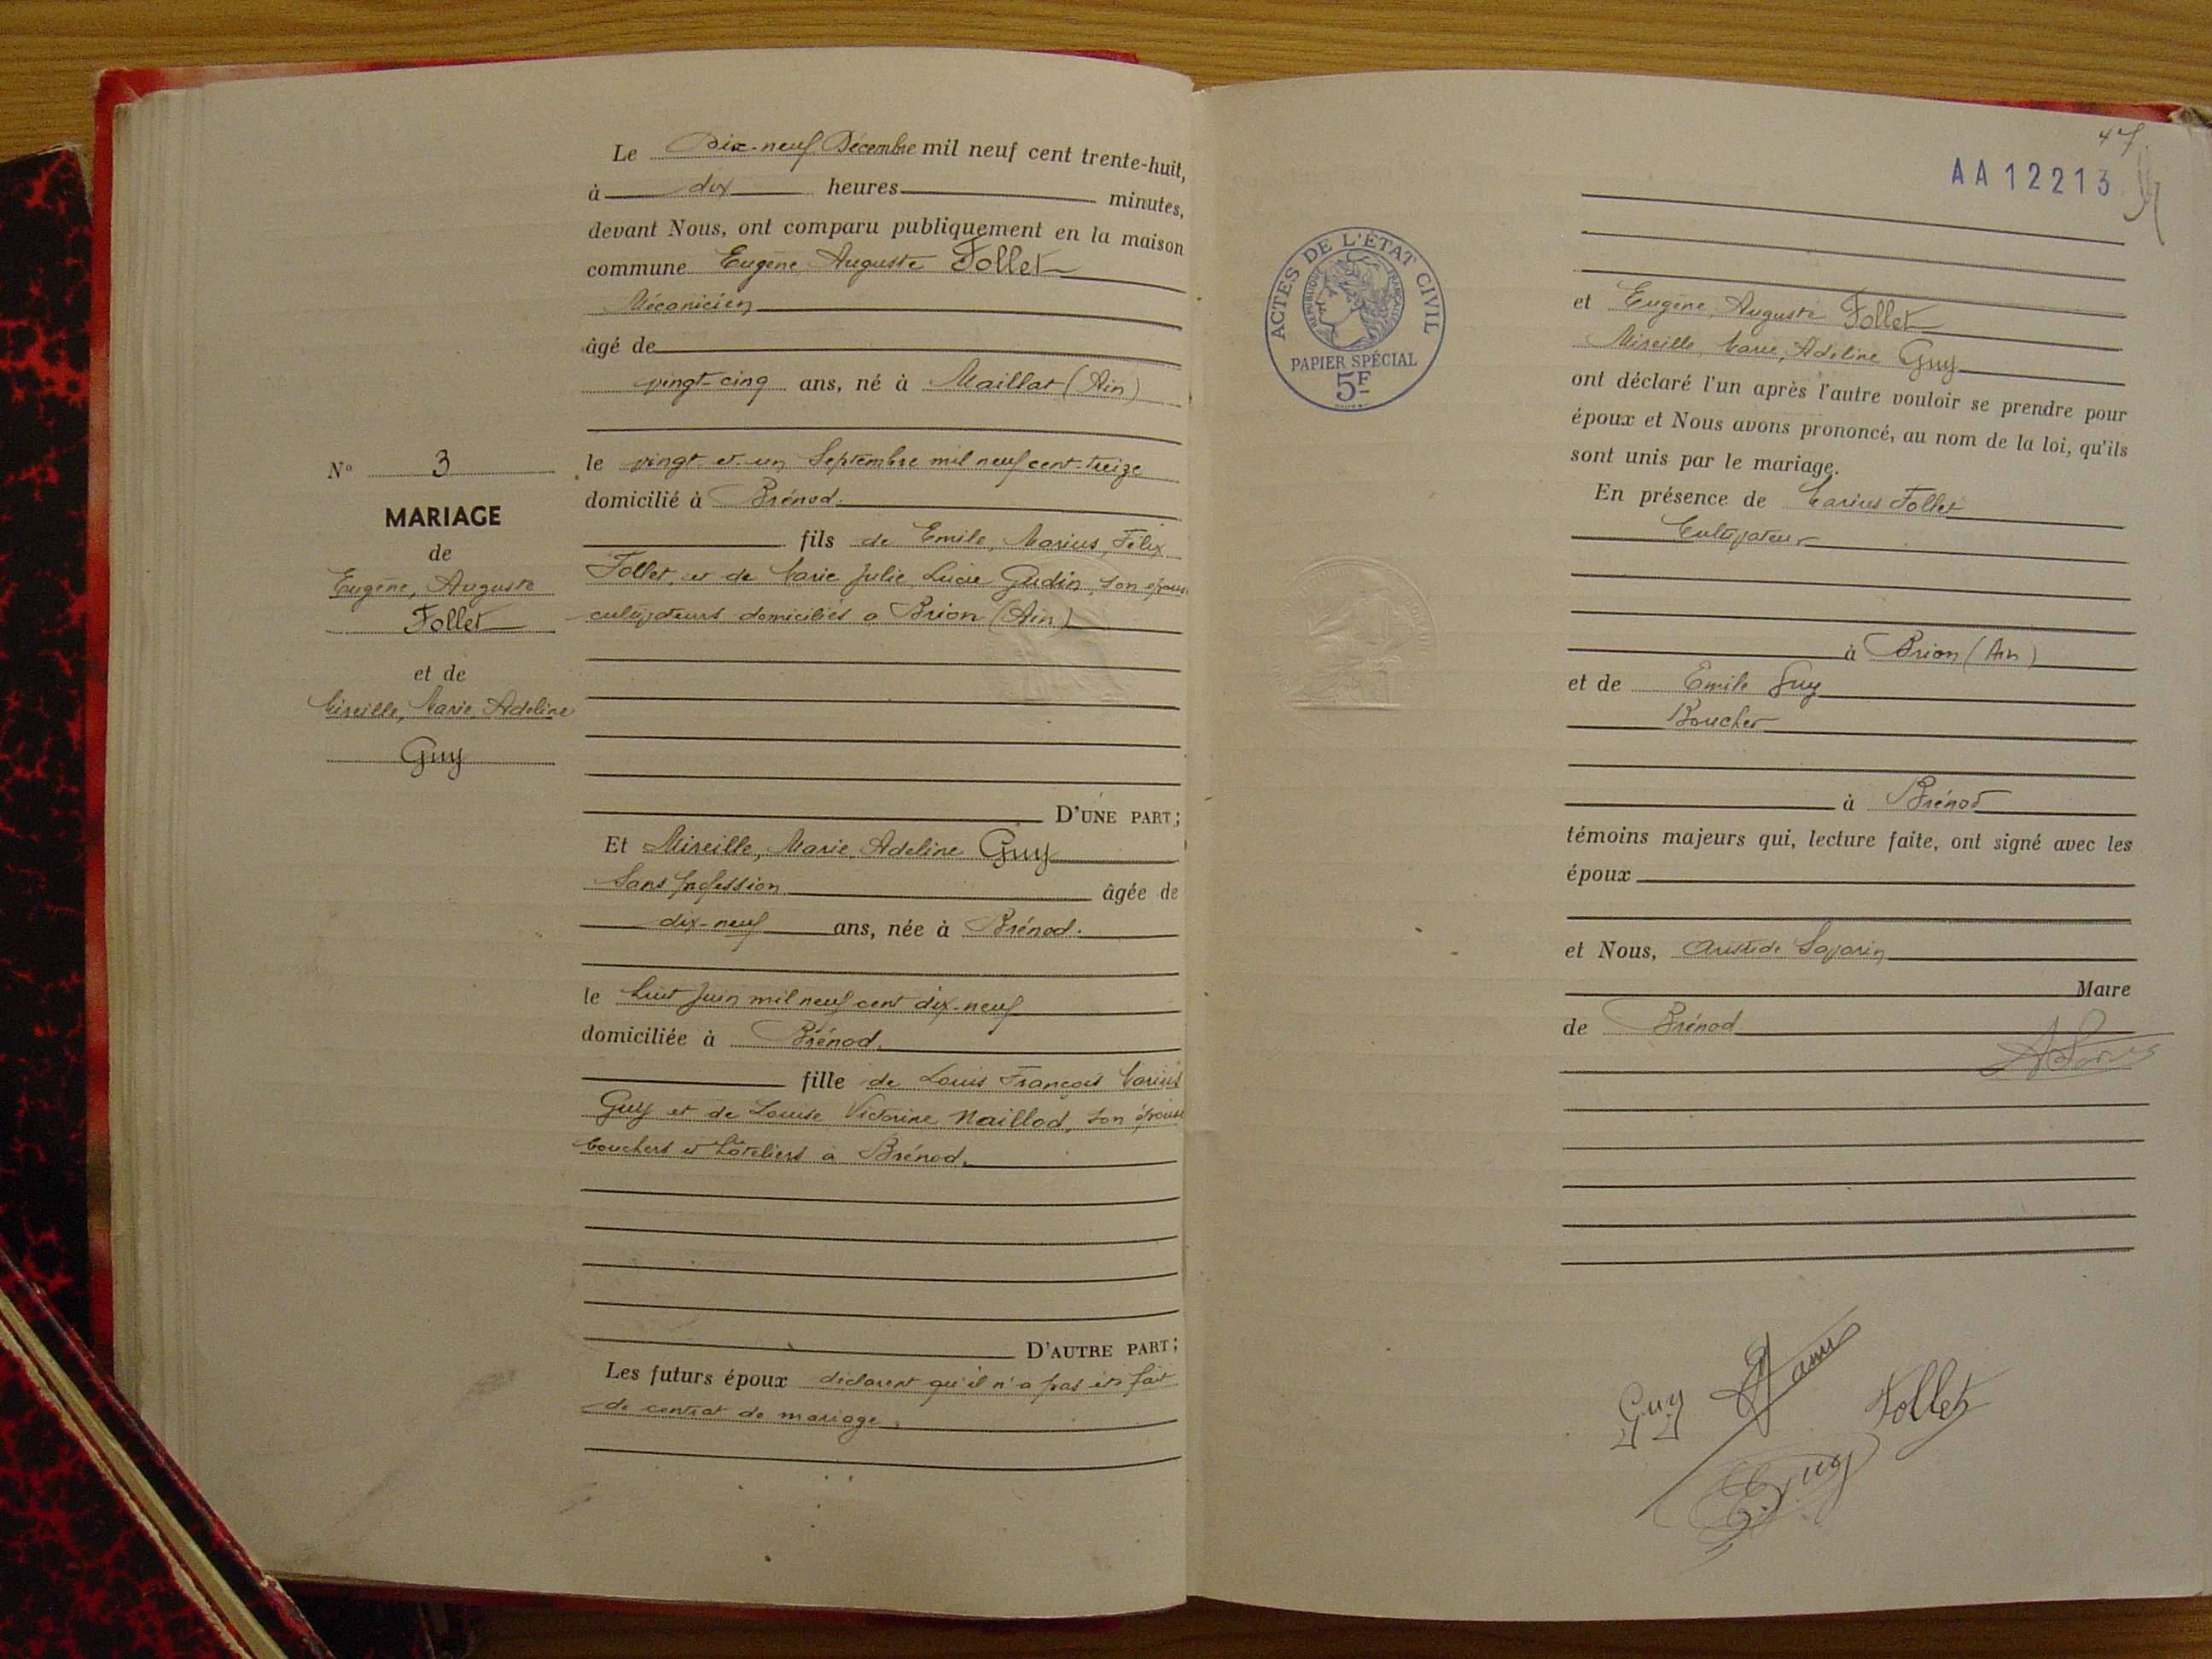 Le Dix-neuf Décembre mil neuf cent trente-huit,
à dix heures minutes,
devant Nous, ont comparu publiquement en la maison
commune Eugène, Auguste Follet
Mécanicien
âgé de
vingt-cinq ans, né à Maillat (Ain)
le vingt et un Septembre mil neuf cent-treize
domicilié à Brénod.
fils de Emile, Marius, Félix
Follet, et de Marie Julie, Lucie Gudin, son épouse
cultivateurs domiciliés à Brion (Ain)
D'UNE PART;
N° 3
MARIAGE
de
Eugène, Auguste
Follet
et de
Mireille, Marie, Adeline
Guy
Et Mireille, Marie, Adeline Guy
Sans profession âgée de
dix-neuf ans, née à Brénod.
le huit Juin mil neuf cent dix-neuf
domiciliée à Brénod.
fille de Louis François Marius
Guy et de Louise Victorine Naillod, son épouse
bouchers et hôteliers à Brénod.
D'AUTRE PART;
Les futurs époux déclarent qu'il n'a pas été fait
de contrat de mariage.
47
AA12213
ACTES DE L'ÉTAT CIVIL
RÉPUBLIQUE FRANÇAISE
PAPIER SPÉCIAL
5F
et Eugène, Auguste Follet
Mireille, Marie, Adeline Guy
ont déclaré l'un après l'autre vouloir se prendre pour
époux et Nous avons prononcé, au nom de la loi, qu'ils
sont unis par le mariage.
En présence de Marius Follet
Cultivateur
à Brion (Ain)
et de Emile Guy
Boucher
à Brénod
témoins majeurs qui, lecture faite, ont signé avec les
époux
et Nous, Aristide Savarin
Maire
de Brénod
Guy
Follet
Guy